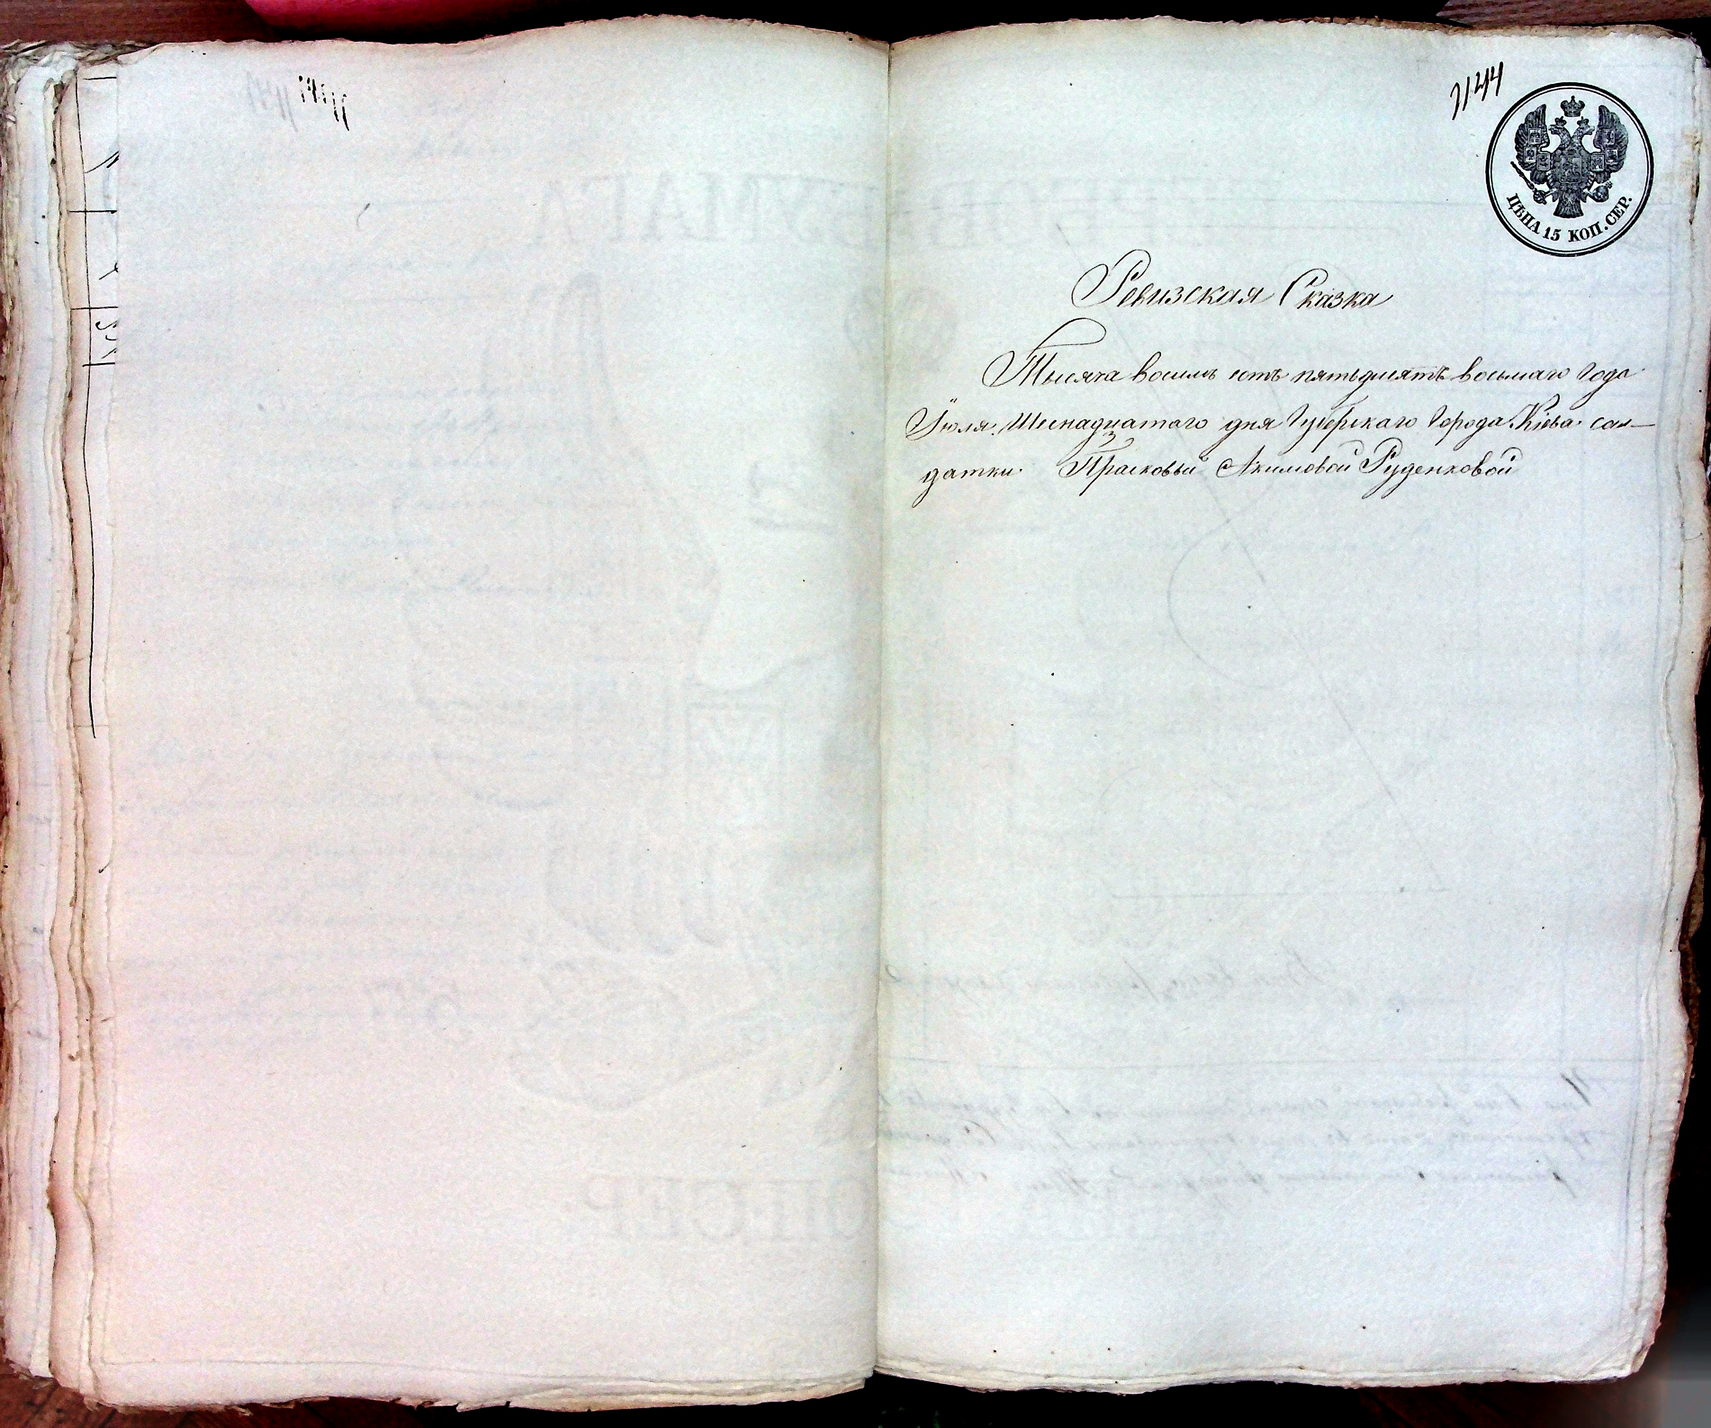 1144
ЦѢНА 15 КОП. СЕР.
Ревизская Сказка
Тысяча восемь сотъ пятьдесятъ восьмаго года
Іюля Шеснадцатаго дня Губерскаго Города Кіева сол–
датки Прасковьи Акимовой Руденковой